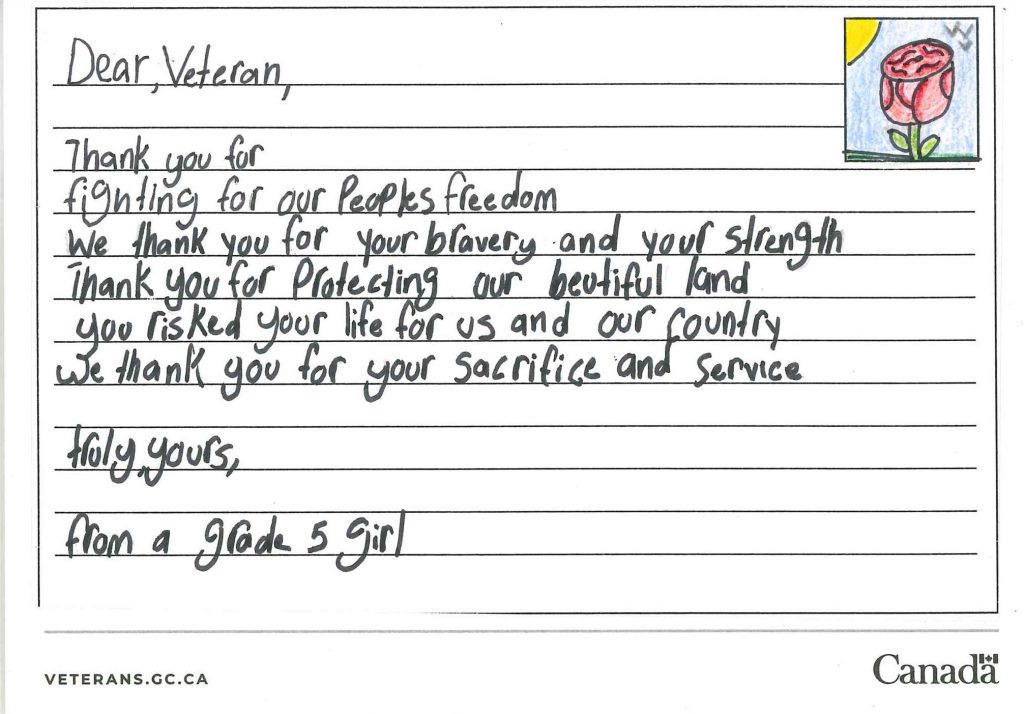 Dear, Veteran,
Thank you for
fighting for our Peoples freedom
We thank you for your bravery and your strength
Thank you for Protecting our beutiful land
you risked your life for us and our country
we thank you for your sacrifice and service
truly, yours,
from a grade 5 girl
VETERANS.GC.CA
Canada